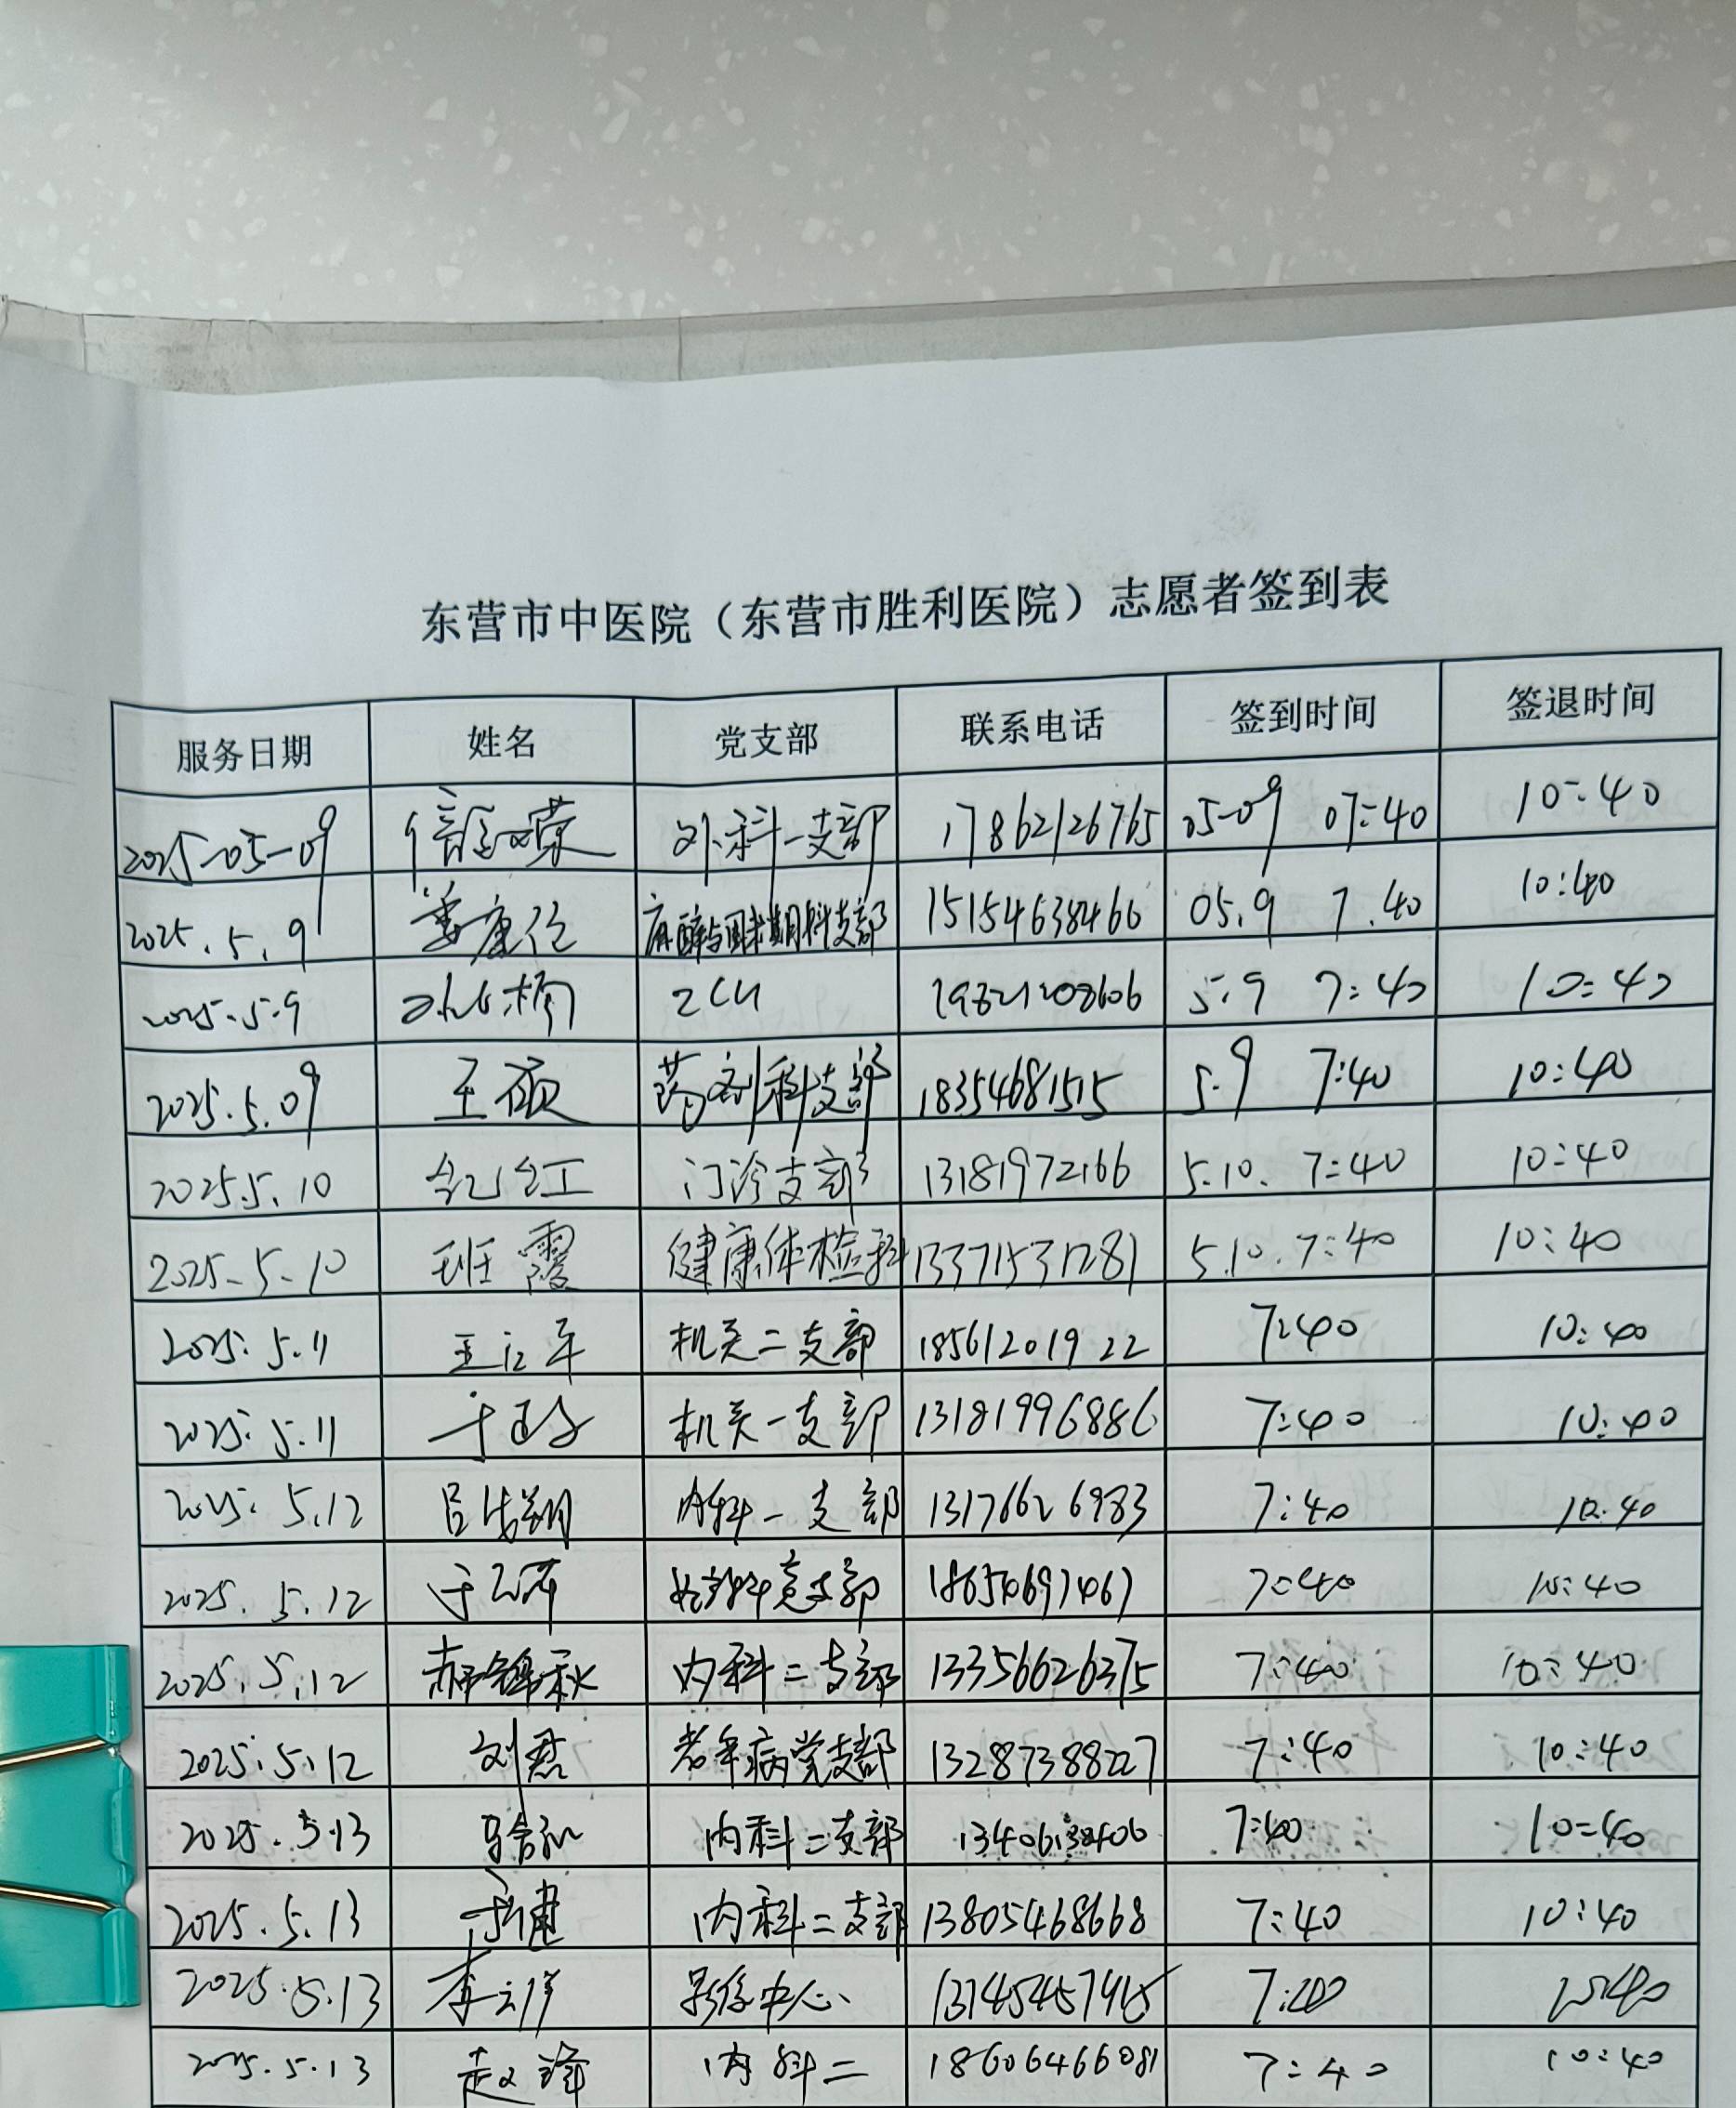 东营市中医院（东营市胜利医院）志愿者签到表
服务日期 姓名 党支部 联系电话 签到时间 签退时间
2025-05-09 外科一支部 17862126765 05-09 07:40 10:40
2025.5.9 麻醉与围术期科支部 15154638466 05.9 7.40 10:40
2025.5.9 5.9 7:40 10:40
2025.5.09 王硕 药剂科支部 18354681515 5.9 7:40 10:40
2025.5.10 纪红 门诊支部 13181972166 5.10. 7:40 10:40
2025.5.10 班霞 健康体检科 13371531281 5.10. 7:40 10:40
2025.5.11 机关二支部 18561201922 7:40 10:40
2025.5.11 机关一支部 13181996886 7:40 10:40
2025.5.12 内科一支部 13176626983 7:40 10:40
2025.5.12 党支部 7:40 10:40
2025.5.12 郝锦秋 内科二支部 13356626375 7:40 10:40
2025.5.12 刘君 老年病党支部 13287388227 7:40 10:40
2025.5.13 内科二支部 7:40 10:40
2025.5.13 内科二支部 13805468668 7:40 10:40
2025.5.13 李云祥 影像中心 7:40
2025.5.13 赵文锋 内科二 18606466081 7:40 10:40